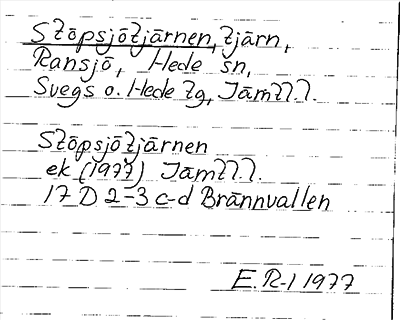 Stöpsjötjärnen, tjärn,
Ransjö, Hede sn,
Svegs o. Hede tg, Jämtl.l.
Stöpsjötjärnen
ek (1977) Jämtl.l.
17 D 2-3 c-d Brännvallen
E.R-l 1977